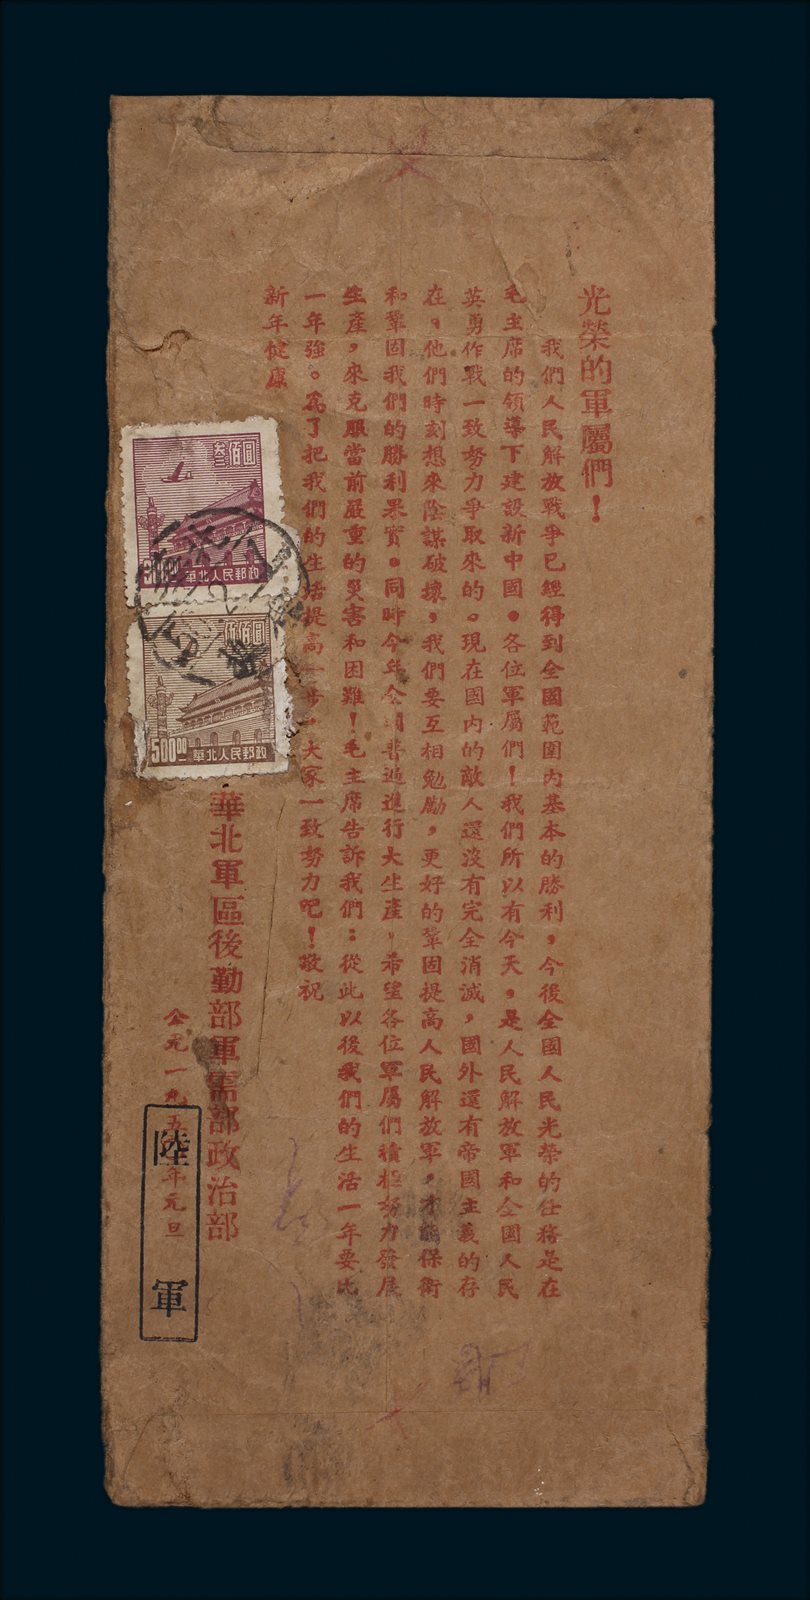 光榮的軍屬們！
我們人民解放戰爭已經得到全國範圍內基本的勝利，今後全國人民光榮的任務是在
毛主席的領導下建設新中國。各位軍屬們！我們所以有今天，是人民解放軍和全國人民
英勇作戰一致努力爭取來的。現在國內的敵人還沒有完全消滅，國外還有帝國主義的存
在。他們時刻想來陰謀破壞，我們要互相勉勵，更好的鞏固提高人民解放軍，才能保衛
和鞏固我們的勝利果實。同時今年全普遍進行大生產，希望各位軍屬們積極努力發展
生產，來克服當前嚴重的災害和困難！毛主席告訴我們：從此以後我們的生活一年要比
一年強。為了把我們的生活提高一步，大家一致努力吧！敬祝
新年健康
華北軍區後勤部軍需部政治部
公元一九五年元旦
陸軍
叁佰圓
華北人民郵政
伍佰圓
500⁰⁰
華北人民郵政